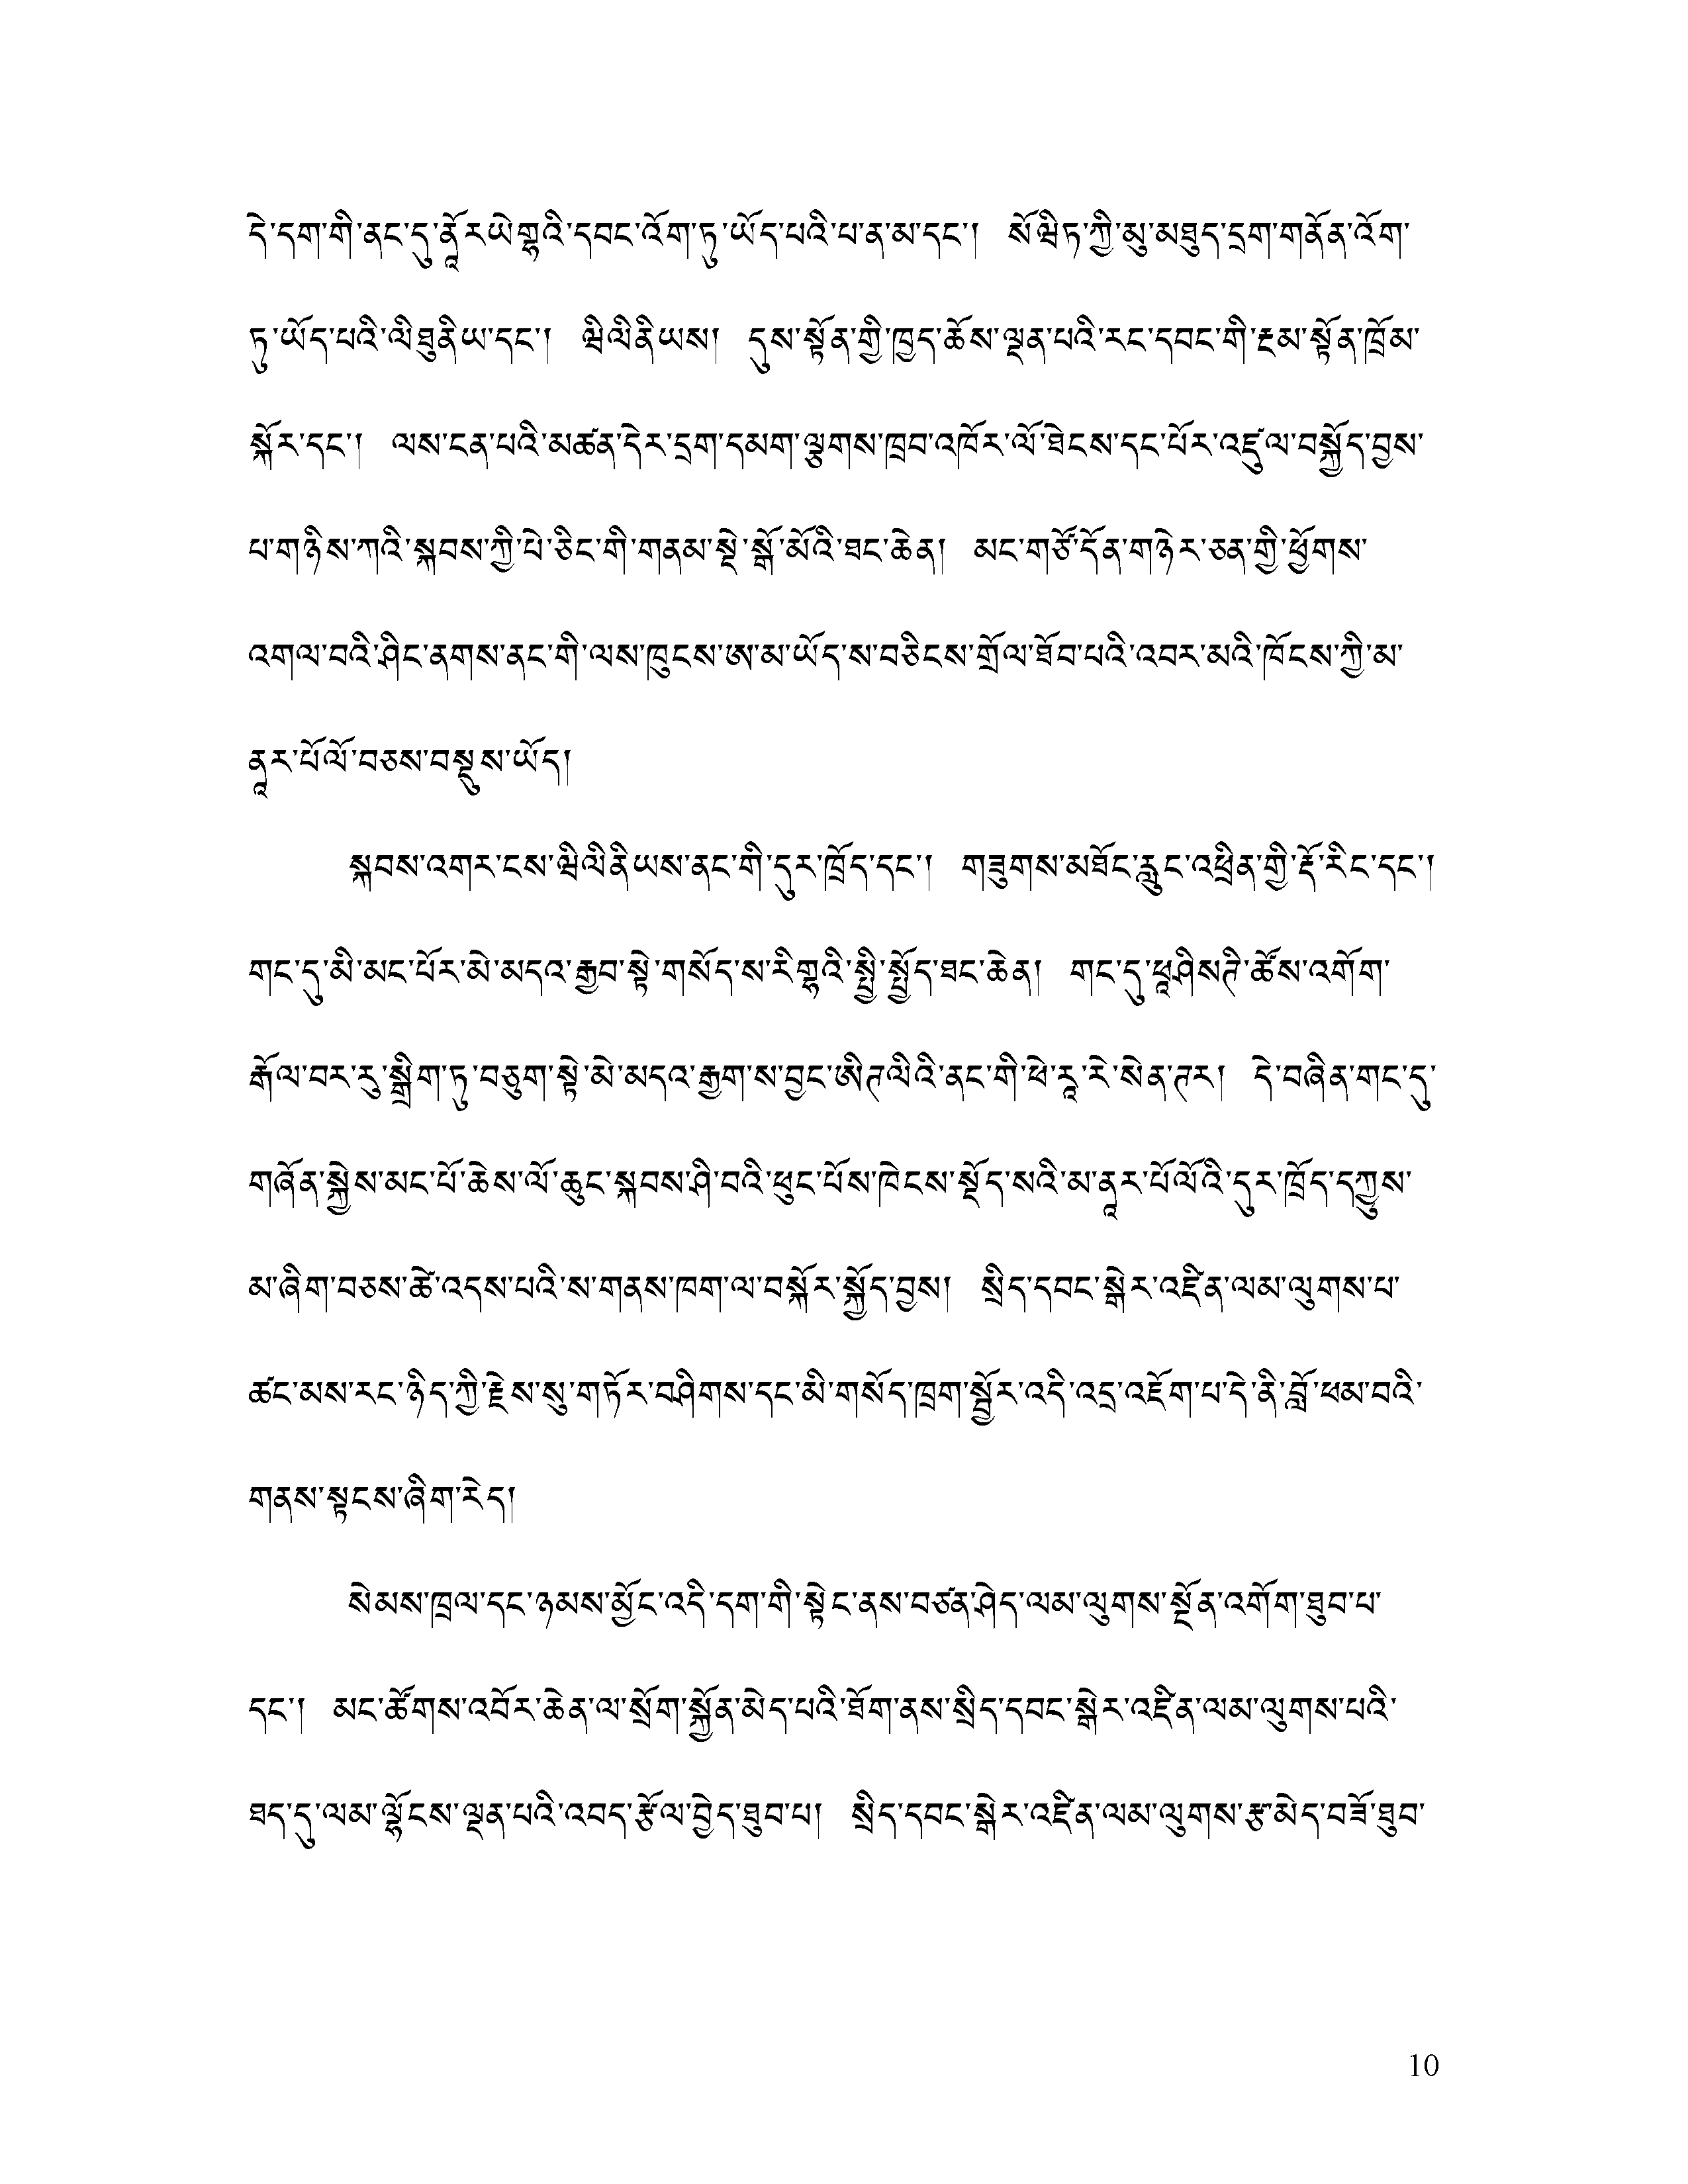 དེ་དག་གི་ནང་དུ་ནཱོར་ཡེགྷའི་དབང་འོག་ཏུ་ཡོད་པའི་པ་ན་མ་དང་།  སོཝིཏ་ཀྱི་མུ་མཐུད་དྲག་གནོན་འོག་
ཏུ་ཡོད་པའི་ལིཐུནིཡ་དང་།  ཝིལིནིཡས།  དུས་སྟོན་གྱི་ཁྱད་ཆོས་ལྡན་པའི་རང་དབང་གི་རྔམ་སྟོན་ཁྲོམ་
སྐོར་དང་།  ལས་ངན་པའི་མཚན་དེར་དྲག་དམག་ལྕགས་ཁྲབ་འཁོར་ལོ་ཐེངས་དང་པོར་འཛུལ་བསྐྱོད་བྱས་
པ་གཉིས་ཀའི་སྐབས་ཀྱི་པེ་ཅིང་གི་གནམ་སྡེ་སྒོ་མོའི་ཐང་ཆེན།  མང་གཙོ་དོན་གཉེར་ཅན་གྱི་ཕྱོགས་
འགལ་བའི་ཤིང་ནགས་ནང་གི་ལས་ཁུངས་ཨ་མ་ཡོད་ས་བཅིངས་གྲོལ་ཐོབ་པའི་འབར་མའི་ཁོངས་ཀྱི་མ་
ནཱར་པོལོ་བཅས་བསྡུས་ཡོད།
སྐབས་འགར་ངས་ཝིལིནིཡས་ནང་གི་དུར་ཁྲོད་དང་།  གཟུགས་མཐོང་རླུང་འཕྲིན་གྱི་རྡོ་རིང་དང་།
གང་དུ་མི་མང་པོར་མེ་མདའ་རྒྱབ་སྟེ་གསོད་ས་རིགྷའི་སྤྱི་སྤྱོད་ཐང་ཆེན།  གང་དུ་ཕཱཤིསཊི་ཚོས་འགོག་
རྒོལ་བར་རུ་སྒྲིག་ཏུ་བཅུག་སྟེ་མེ་མདའ་རྒྱག་ས་བྱང་ཨིཊལིའི་ནང་གི་ཕེ་རཱ་རེ་སེན་ཊར།  དེ་བཞིན་གང་དུ་
གཞོན་སྐྱེས་མང་པོ་ཆེས་ལོ་ཆུང་སྐབས་ཤི་བའི་ཕུང་པོས་ཁེངས་སྡོད་སའི་མ་ནཱར་པོལོའི་དུར་ཁྲོད་དཀྱུས་
མ་ཞིག་བཅས་ཚེ་འདས་པའི་ས་གནས་ཁག་ལ་བསྐོར་སྐྱོད་བྱས།  སྲིད་དབང་སྒེར་འཛིན་ལམ་ལུགས་པ་
ཚང་མས་རང་ཉིད་ཀྱི་རྗེས་སུ་གཏོར་བཤིགས་དང་མི་གསོད་ཁྲག་སྦྱོར་འདི་འདྲ་འཇོག་པ་དེ་ནི་བློ་ཕམ་བའི་
གནས་སྟངས་ཞིག་རེད།
སེམས་ཁྲལ་དང་ཉམས་མྱོང་འདི་དག་གི་སྟེང་ནས་བཙན་ཤེད་ལམ་ལུགས་སྔོན་འགོག་ཐུབ་པ་
དང་།  མང་ཚོགས་འབོར་ཆེན་ལ་སྲོག་སྐྱོན་མེད་པའི་ཐོག་ནས་སྲིད་དབང་སྒེར་འཛིན་ལམ་ལུགས་པའི་
ཐད་དུ་ལམ་ལྷོངས་ལྡན་པའི་འབད་རྩོལ་བྱེད་ཐུབ་པ།  སྲིད་དབང་སྒེར་འཛིན་ལམ་ལུགས་རྩ་མེད་བཟོ་ཐུབ་
10